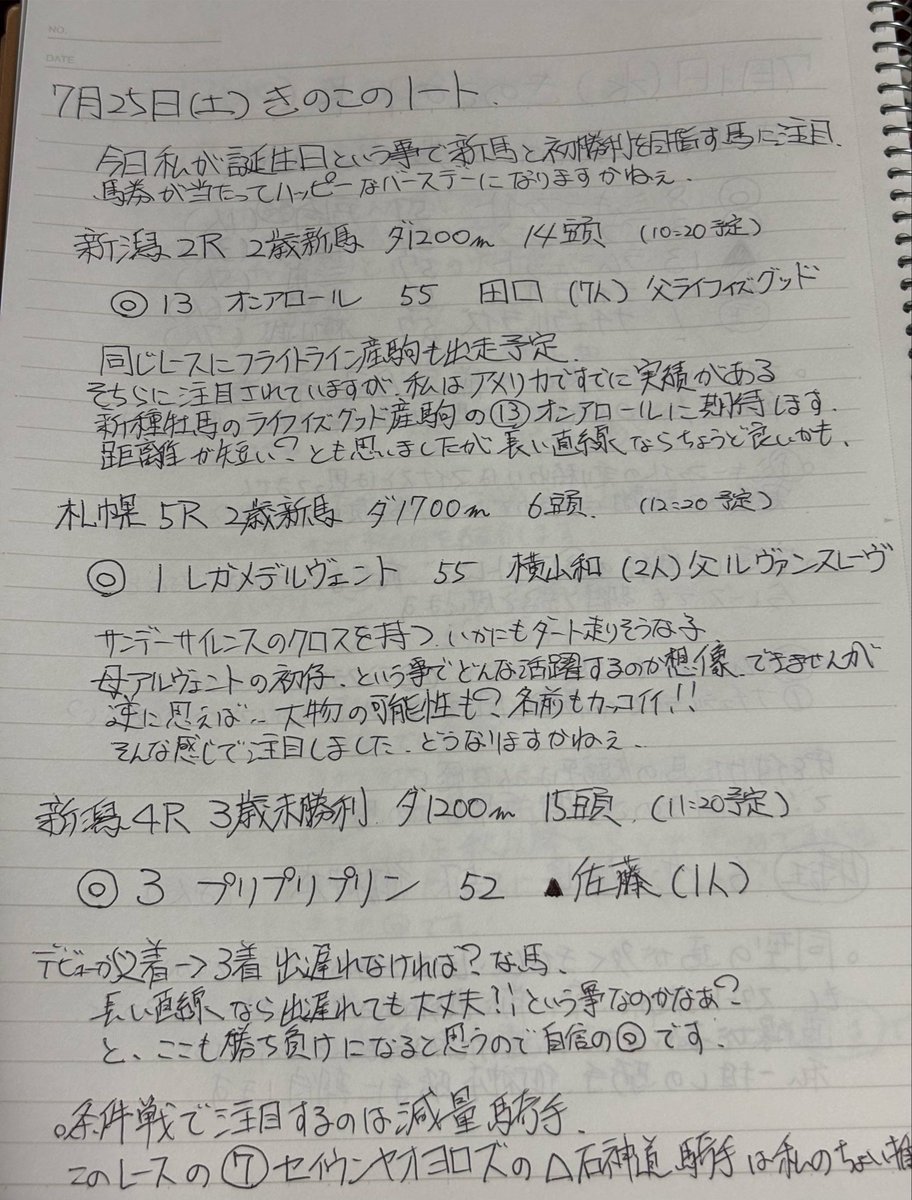 NO.
DATE
7月25日(土) きのこのノート.
今日私が誕生日という事で新馬と初勝利を目指す馬に注目.
馬券が当たってハッピーなバースデーになりますかねぇ.
新潟2R 2歳新馬 ダ1200m 14頭 (10=20予定)
◎ 13 オンアロール 55 田口 (7人) 父ライフイズグッド
同じレースにフライトライン産駒も出走予定.
そちらに注目されていますが、私はアメリカですでに実績がある
新種牡馬のライフイズグッド産駒の⑬オンアロールに期待します.
距離が短い?とも思いましたが長い直線ならちょうど良いかも.
札幌5R 2歳新馬 ダ1700m 6頭. (12=20予定)
◎ 1 レガメデルヴェント 55 横山和 (2人) 父ルヴァンスレーヴ
サンデーサイレンスのクロスを持つ、いかにもダート走りそうな子
母アルヴェントの初仔、という事でどんな活躍するのか想像できませんが
逆に思えば… 大物の可能性も?名前もカッコイイ!!
そんな感じで注目しました.どうなりますかねぇ.
新潟4R 3歳未勝利 ダ1200m 15頭. (11=20予定)
◎ 3 プリプリプリン 52 ▲佐藤 (1人)
デビューが2着→3着 出遅れなければ?な馬.
長い直線なら出遅れても大丈夫?!という事なのかなぁ?
と、ここも勝ち負けになると思うので自信の◎です.
○条件戦で注目するのは減量騎手.
このレースの⑦セイウンヤオヨロズの△石神道騎手は私のちょい推